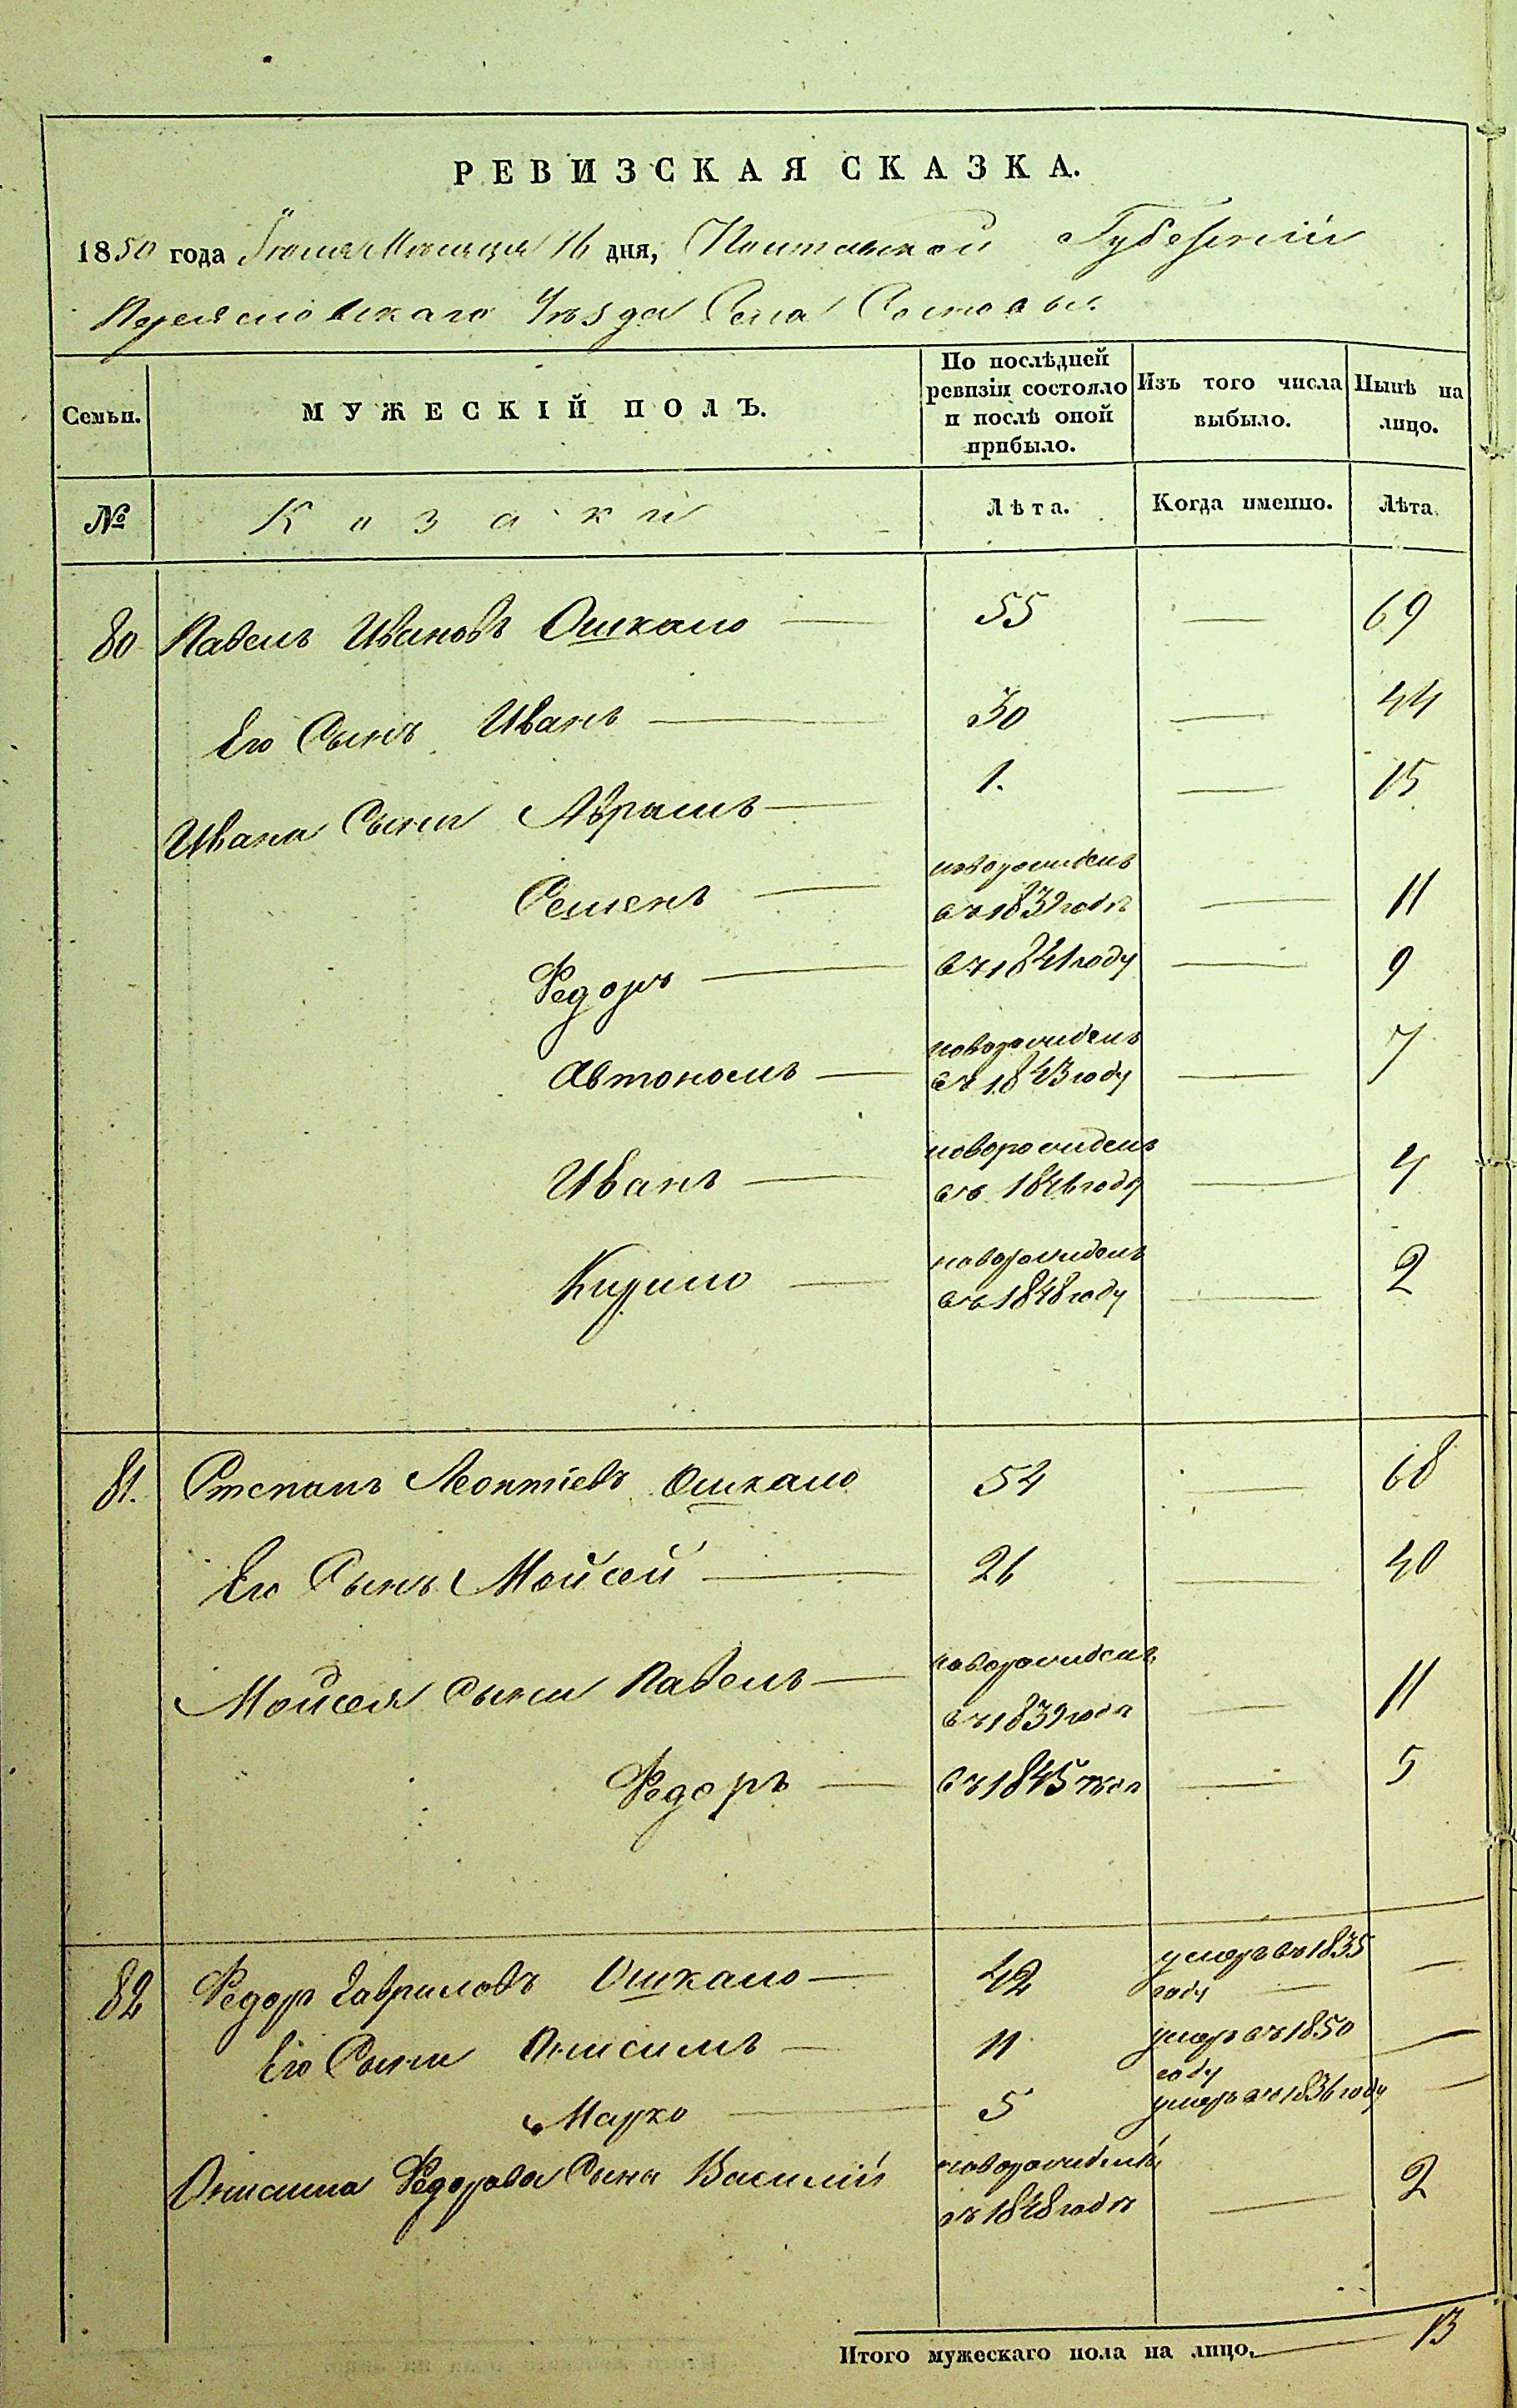 РЕВИЗСКАЯ СКАЗКА.
1850 года Іюня Мѣсяца 16 дня, Полтавской Губерніи
Переясловскаго Уѣзда Села
Семьи.
МУЖЕСКІЙ ПОЛЪ.
По послѣдней ревизіи состояло и послѣ оной прибыло.
Изъ того числа выбыло.
Нынѣ на лицо.
№
Козаки
Лѣта.
Когда именно.
Лѣта.
80 Павелъ Ивановъ Ошкало — 55 — 69
Его Сынъ Иванъ — 30 — 44
Ивана Сыны Абрамъ — 1. — 15
Семенъ — новорожденъ въ 1839 годѣ — 11
Федоръ — въ 1841 году — 9
Автономъ — новорожденъ въ 1843 году — 7
Иванъ — новорожденъ въ 1846 годѣ — 4
Кирило — новорожденъ въ 1848 году — 2
81. Степанъ Леонтіевъ Ошкало 54 — 68
Его Сынъ Мойсей — 26 — 40
Мойсея Сыны Павелъ — новорожденъ въ 1839 годѣ — 11
Федоръ — въ 1845 годѣ — 5
82 Федоръ Гавриловъ Ошкало — 42 умеръ въ 1835 году — —
Его Сыны Онисимъ — 11 умеръ въ 1850 году —
Марко — 5 умеръ въ 1836 году —
Онисима Федорова Сынъ Василій новорожденъ въ 1848 годѣ — 2
Итого мужескаго пола на лицо. — 13